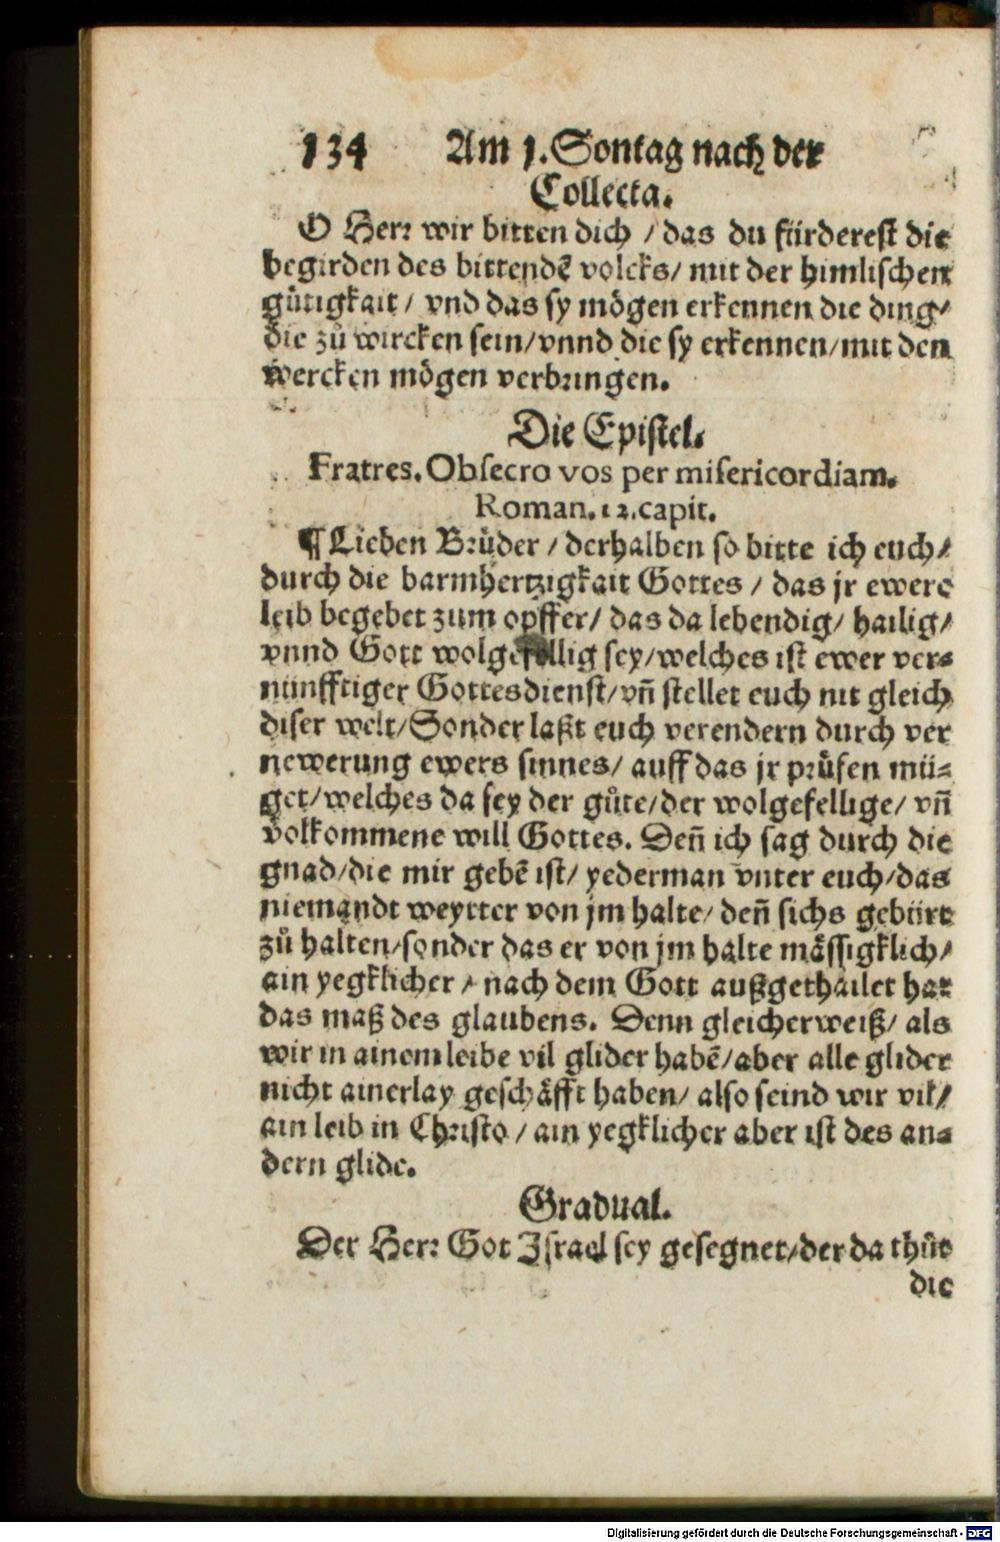 134 Am 1. Sontag nach der
Collecta.
O Herr wir bitten dich / das du fürderest die
begirden des bittendē volcks / mit der himlischen
gůtigkait / vnd das sy mögen erkennen die ding /
die zů wircken sein / vnnd die sy erkennen / mit den
wercken mögen verbringen.
Die Epistel.
Fratres. Obsecro vos per misericordiam.
Roman. 12. capit.
¶ Lieben Brůder / derhalben so bitte ich euch /
durch die barmhertzigkait Gottes / das jr ewere
leib begebet zum opffer / das da lebendig / hailig /
vnnd Gott wolgefellig sey / welches ist ewer ver=
nünfftiger Gottesdienst / vn̄ stellet euch nit gleich
diser welt / Sonder laßt euch verendern durch ver
newerung ewers sinnes / auff das jr průfen mü=
get / welches da sey der gůte / der wolgefellige / vn̄
volkommene will Gottes. Den̄ ich sag durch die
gnad / die mir gebē ist / yederman vnter euch / das
niemandt weytter von jm halte / den̄ sichs gebürt
zů halten / sonder das er von jm halte mässigklich /
ain yegklicher / nach dem Gott außgethailet hat
das maß des glaubens. Denn gleicherweiß / als
wir in ainem leibe vil glider habē / aber alle glider
nicht ainerlay geschäfft haben / also seind wir vil /
ain leib in Christo / ain yegklicher aber ist des an=
dern glide.
Gradual.
Der Herr Got Israel sey gesegnet / der da thůt
die
Digitalisierung gefördert durch die Deutsche Forschungsgemeinschaft - DFG